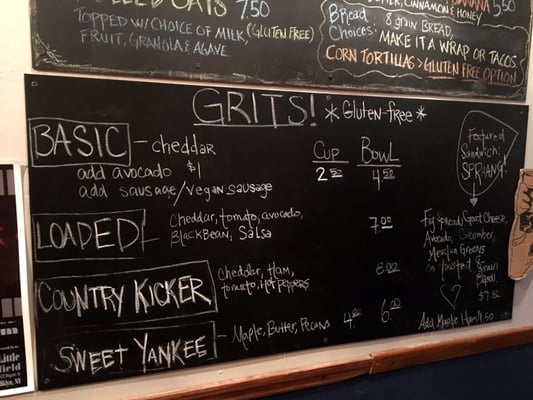 OATS 7.50
TOPPED W/ CHOICE OF MILK, (GLUTEN FREE)
FRUIT, GRANOLA & AGAVE
CINNAMON & HONEY
5.50
Bread Choices: 8 grain BREAD,
MAKE IT A WRAP OR TACOS
CORN TORTILLAS > GLUTEN FREE OPTION
GRITS! *Gluten-free*
BASIC - cheddar
add avocado $1
add sausage/vegan sausage
CUP BOWL
2.50 4.50
LOADED! Cheddar, tomato, avocado,
BlackBean, Salsa
7.00
COUNTRY KICKER Cheddar, Ham,
tomato, Hot Peppers
8.00
SWEET YANKEE - Maple, Butter, Pecans 4.00 6.00
Featured
Sandwich:
SPRAANG!
Fig Spread, Goat Cheese,
Avocado, Cucumber,
Mesclun Greens
on toasted 8
Grain
Bread
$7.50
Add Maple Ham 1.50
Little
field
klyn, NY